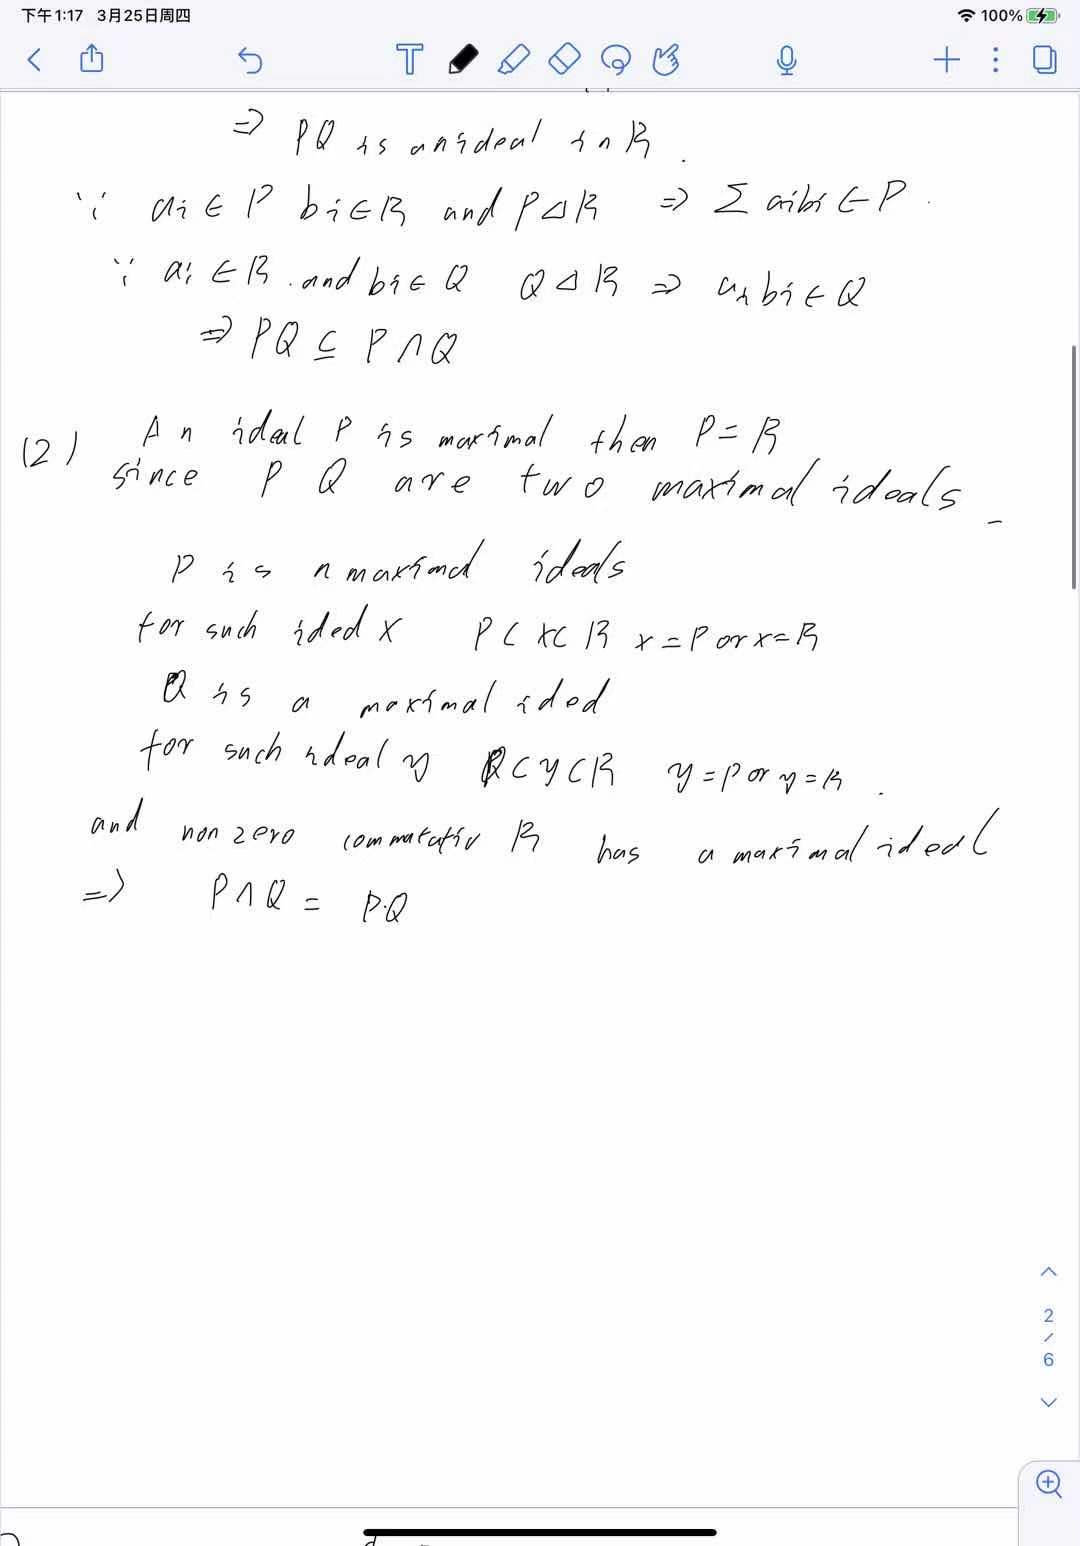 下午1:17 3月25日周四
100%
⇒ PQ is an ideal in R.
∵ ai ∈ P bi ∈ R and P△R ⇒ Σ aibi ∈ P.
∵ ai ∈ R. and bi ∈ Q Q△R ⇒ aibi ∈ Q
⇒ PQ ⊆ P∩Q
(2) An ideal P is maximal then P = R
since P Q are two maximal ideals
P is a maximal ideals
for such ideal X P⊂X⊂R x=P or x=R
Q is a maximal ideal
for such ideal y Q⊂y⊂R y=P or y=R.
and nonzero commutativ R has a maximal ideal
⇒ P∩Q = P·Q
2
/
6